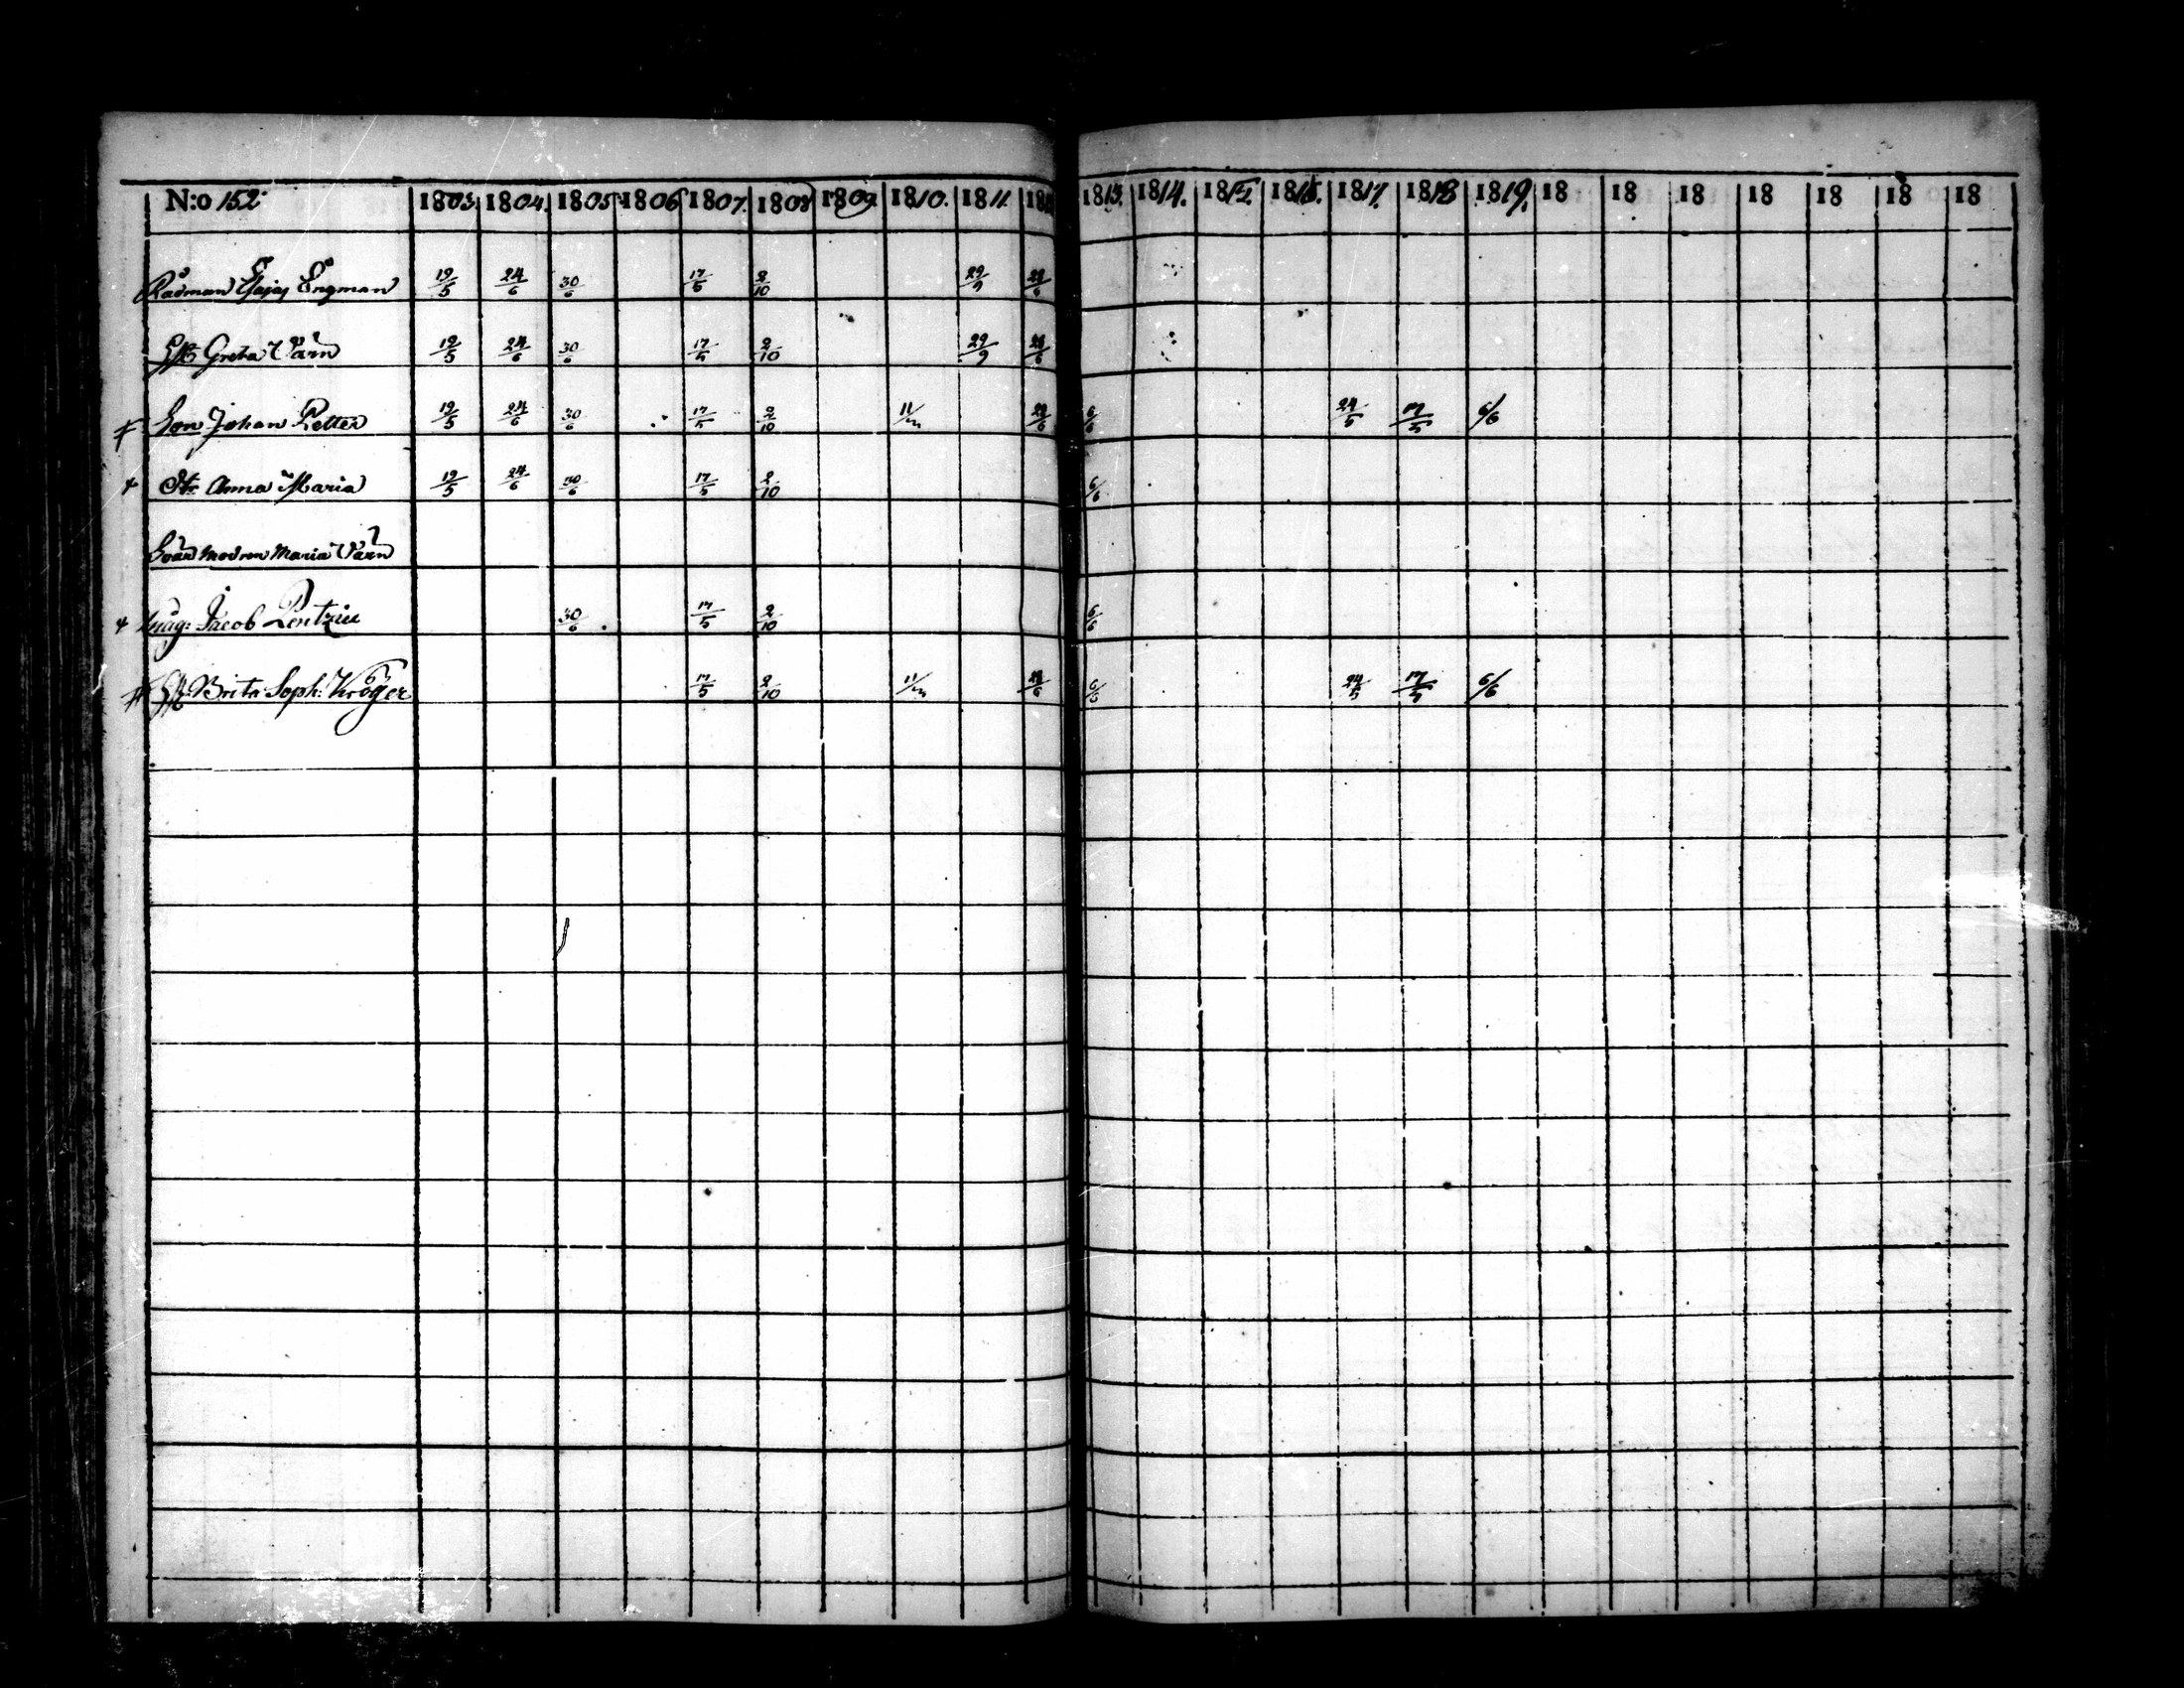 N:o 152 1803. 1804. 1805. 1806 1807. 1808 1809. 1810. 1811. 181 1813. 1814. 1815. 1816. 1817. 1818 1819. 18 18 18 18 18 18 18
Rådman Esajas Engman 19/5 24/6 30/6 17/5 2/10 29/9 28/6
Greta Värn 19/5 24/6 30/6 17/5 2/10 29/9 28/6
Son Johan Petter 19/5 24/6 30/6 17/5 2/10 11/m 28/6 6/6 24/5 17/5 6/6
Dr. Anna Maria 19/5 24/6 30/6 17/5 2/10 6/6
Svär modren Maria Värn
Jacob 30/6 17/5 2/10 6/6
Brita Soph: Kröger 17/5 2/10 11/m 28/6 6/6 24/5 17/5 6/6